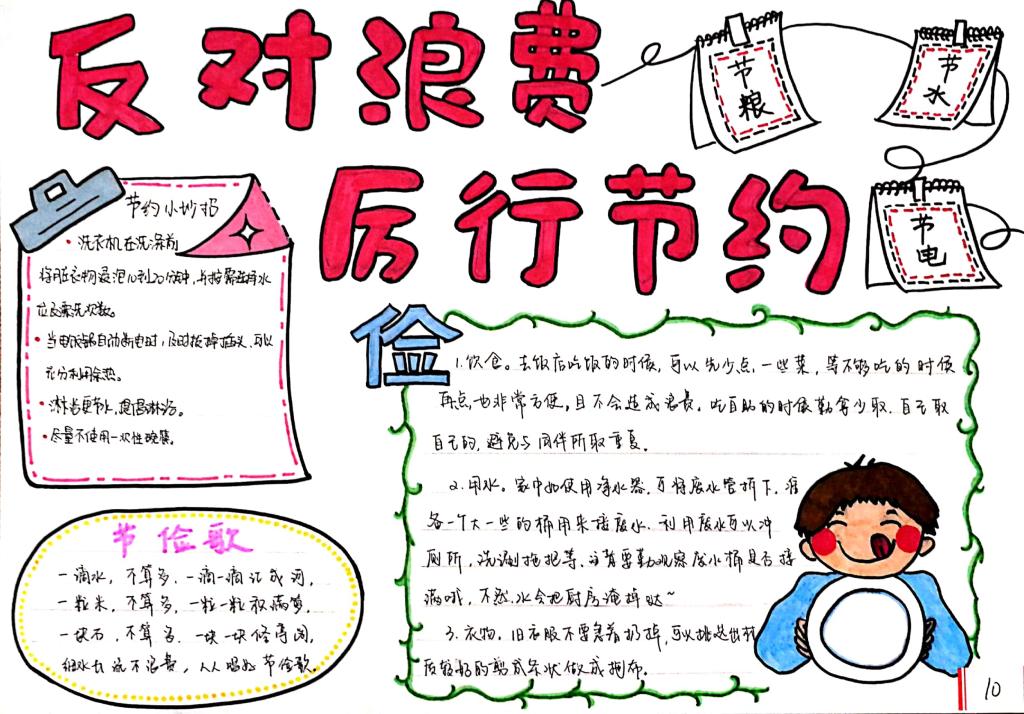 反对浪费
厉行节约
节粮
节水
节电
节约小妙招
• 洗衣机在洗涤前
将脏衣物浸泡10到20分钟,并按需选择水
位及漂洗次数。
• 当电饭锅自动断电时,及时拔掉插头,可以
充分利用余热。
• 淋浴更节水,提倡淋浴。
• 尽量不使用一次性碗筷。
节俭歌
一滴水,不算多,一滴一滴汇成河,
一粒米,不算多,一粒一粒积满箩,
一块石,不算多,一块一块修高阁,
细水长流不浪费,人人唱好节俭歌。
俭
1.饮食。去饭店吃饭的时候,可以先少点一些菜,等不够吃的时候
再点,也非常方便,且不会造成浪费。吃自助的时候勤拿少取,自己取
自己的,避免与同伴所取重复。
2.用水。家中如使用净水器,可将废水管拆下,准
备一个大一些的桶用来接废水,利用废水可以冲
厕所,洗涮拖把等,注意要勤观察废水桶是否接
满哦,不然水会把厨房淹掉哒~
3.衣物。旧衣服不要急着扔掉,可以挑选出材
质较好的剪成条状做成拖布。
10